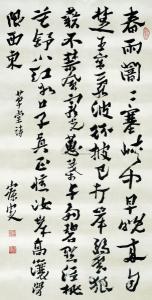 春雨闇〻塞峡中早晚來自
楚王宮亂波分披已打岸弱雲狼
藉不禁風寵光蕙葉與多碧點注桃
花舒小紅谷口子真正憶汝岸高瀼滑
限西東
草堂詩